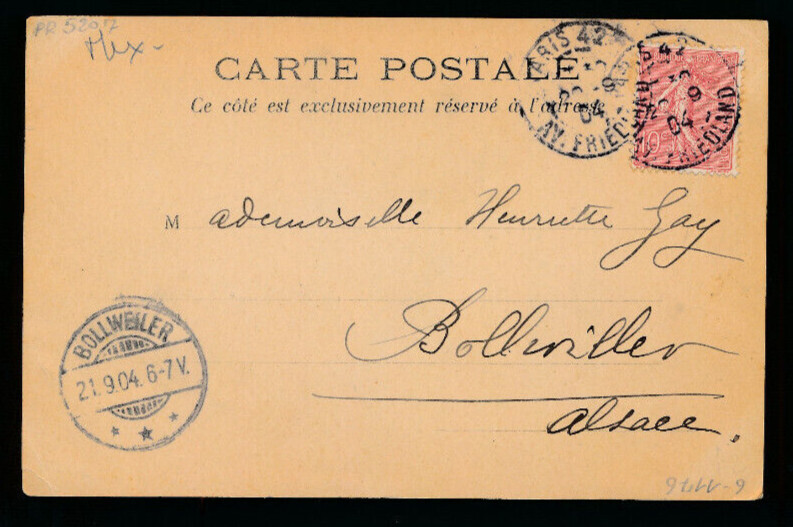 PR 5207
CARTE POSTALE
Ce côté est exclusivement réservé à l'adresse
PARIS 42
AV. FRIEDLAND
04
PARIS 42
AV. FRIEDLAND
04
10
M ademoiselle Henriette Gay
Bollwiller
Alsace.
BOLLWEILER
21.9.04. 6-7 V.